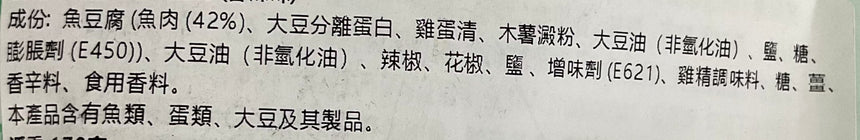 成份: 魚豆腐 (魚肉 (42%)、大豆分離蛋白、雞蛋清、木薯澱粉、大豆油（非氫化油）、鹽、糖、
膨脹劑 (E450))、大豆油（非氫化油）、辣椒、花椒、鹽、增味劑 (E621)、雞精調味料、糖、薑、
香辛料、食用香料。
本產品含有魚類、蛋類、大豆及其製品。